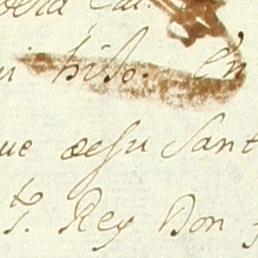 hiso. En
ue de su Sant
to. Rey Don